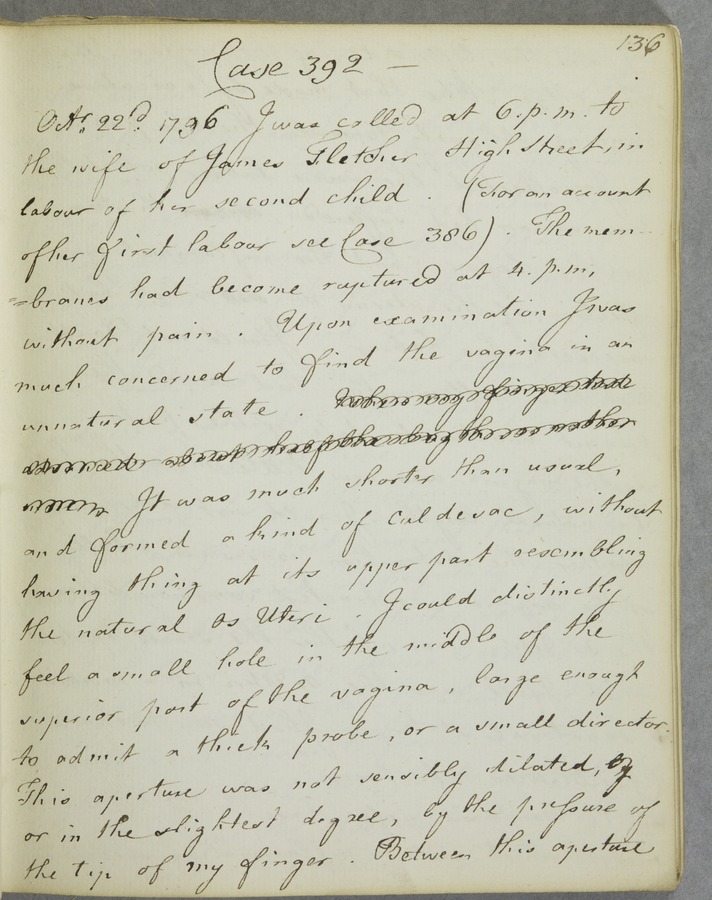 136
Case 392 —
Octr. 22d. 1796 I was called at 6. p. m. to
the wife of James Fletcher High Street, in
labour of her second child. (For an account
of her first labour see Case 386). The mem-
=branes had become ruptured at 4. p. m,
without pain. Upon examination I was
much concerned to find the vagina in an
unnatural state. When my finger had
about half the
It was much shorter than usual,
and formed a kind of Culdesac, without
having thing at its upper part resembling
the natural Os Uteri. I could distinctly
feel a small hole in the middle of the
superior part of the vagina, large enough
to admit a thick probe, or a small director.
This aperture was not sensibly dilated, by
or in the slightest degree, by the pressure of
the tip of my finger. Between this aperture